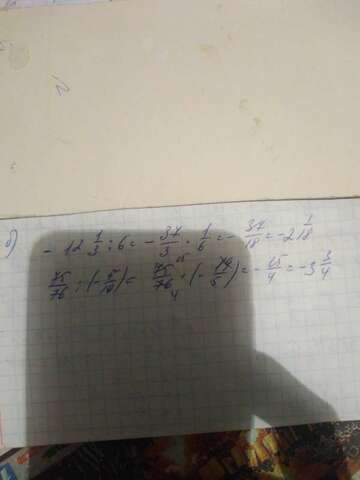 б) - 12 1/3 : 6 = - 37/3 · 1/6 = - 37/18 = -2 1/18
75/76 : (- 5/19) = 75/76 · (- 19/5) = - 15/4 = -3 3/4